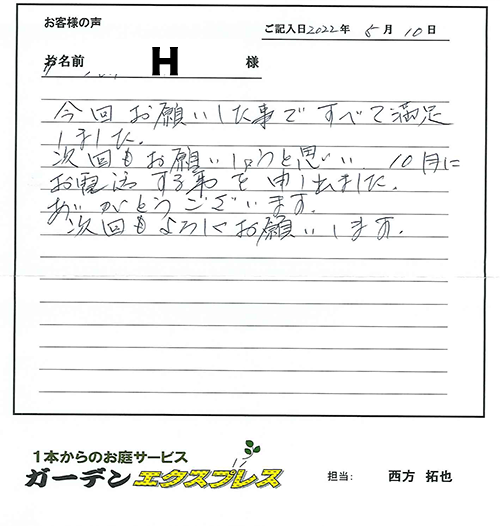 お客様の声
ご記入日2022年 5月10日
お名前 H 様
今回お願いした事ですべて満足
しました。
次回もお願いしようと思い、10月に
お電話する事を申し出ました。
ありがとうございます。
次回もよろしくお願いします。
1本からのお庭サービス
ガーデンエクスプレス
担当: 西方 拓也